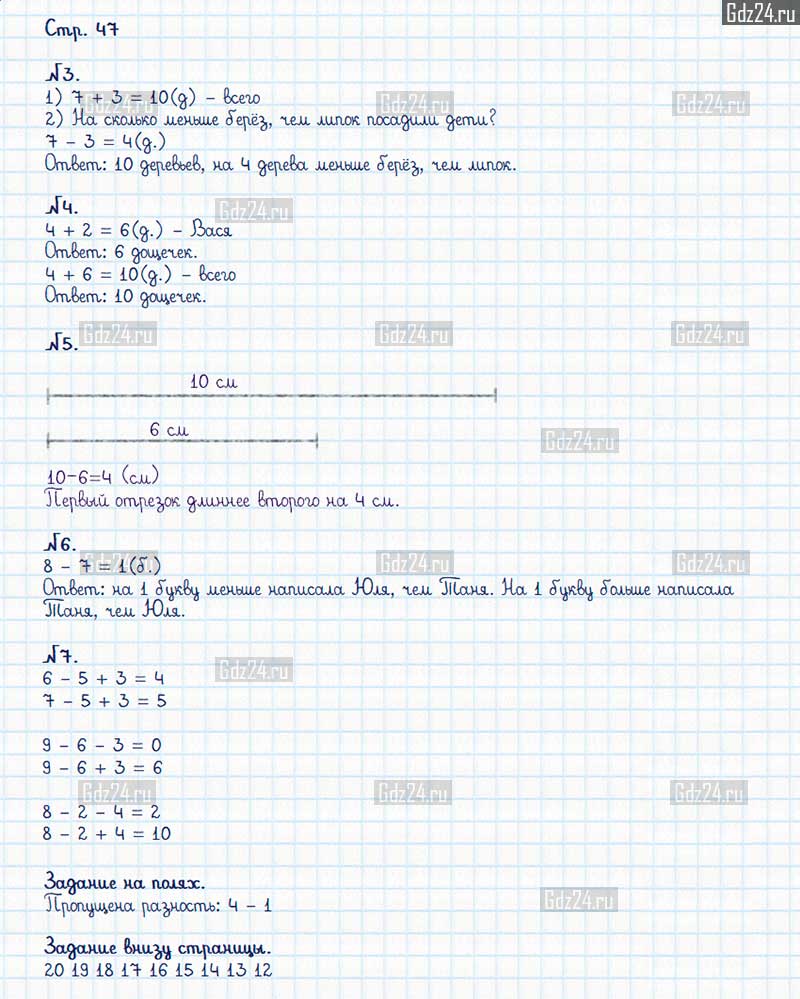 Gdz24.ru
Стр. 47
№3.
1) 7 + 3 = 10(д) - всего
2) На сколько меньше берёз, чем липок посадили дети?
7 - 3 = 4(д.)
Ответ: 10 деревьев, на 4 дерева меньше берёз, чем липок.
№4.
4 + 2 = 6(д.) - Вася
Ответ: 6 дощечек.
4 + 6 = 10(д.) - всего
Ответ: 10 дощечек.
№5.
10 см
6 см
10-6=4 (см)
Первый отрезок длиннее второго на 4 см.
№6.
8 - 7 = 1(б.)
Ответ: на 1 букву меньше написала Юля, чем Таня. На 1 букву больше написала
Таня, чем Юля.
№7.
6 - 5 + 3 = 4
7 - 5 + 3 = 5
9 - 6 - 3 = 0
9 - 6 + 3 = 6
8 - 2 - 4 = 2
8 - 2 + 4 = 10
Задание на полях.
Пропущена разность: 4 - 1
Задание внизу страницы.
20 19 18 17 16 15 14 13 12